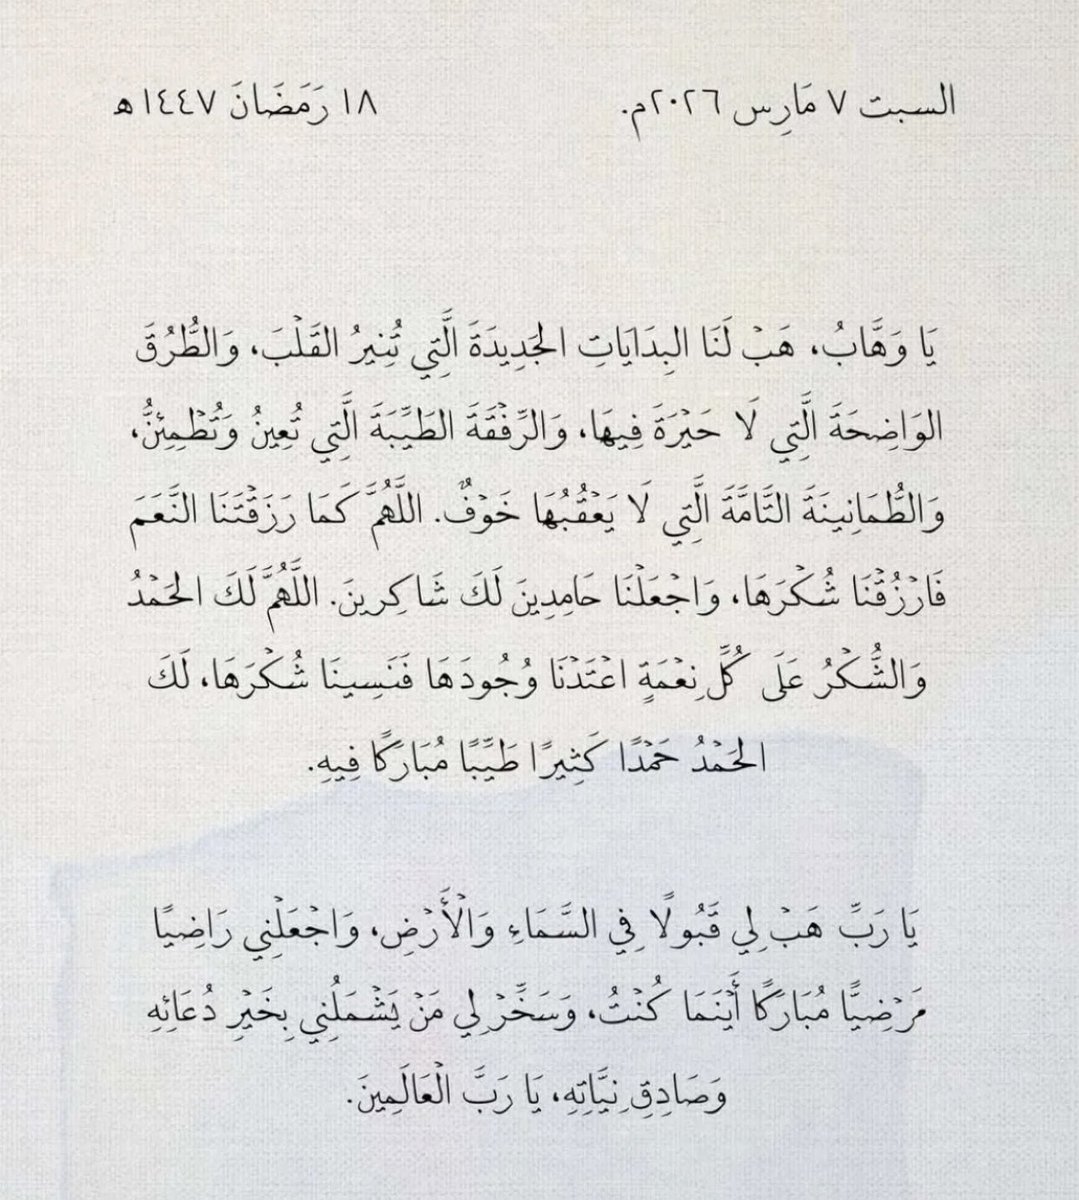 السبت ٧ مَارِس ٢٠٢٦م. ١٨ رَمَضَانَ ١٤٤٧ه
يَا وَهَّابُ، هَبْ لَنَا البِدَايَاتِ الجَدِيدَةَ الَّتِي تُنِيرُ القَلْبَ، وَالطُّرُقَ
الوَاضِحَةَ الَّتِي لَا حَيْرَةَ فِيهَا، وَالرِّفْقَةَ الطَيِّبَةَ الَّتِي تُعِينُ وَتُطْمِئِنُّ،
وَالطُّمَانِينَةَ التَّامَّةَ الَّتِي لَا يَعْقُبُهَا خَوْفٌ. اللَّهُمَّ كَمَا رَزَقْتَنَا النَّعَمَ
فَارْزُقْنَا شُكْرَهَا، وَاجْعَلْنَا حَامِدِينَ لَكَ شَاكِرِينَ. اللَّهُمَّ لَكَ الحَمْدُ
وَالشُّكْرُ عَلَى كُلِّ نِعْمَةٍ اعْتَدْنَا وُجُودَهَا فَنَسِينَا شُكْرَهَا، لَكَ
الحَمْدُ حَمْدًا كَثِيرًا طَيِّبًا مُبَارَكًا فِيهِ.
يَا رَبِّ هَبْ لِي قَبُولًا فِي السَّمَاءِ وَالْأَرْضِ، وَاجْعَلْنِي رَاضِيًا
مَرْضِيًّا مُبَارَكًا أَيْنَمَا كُنْتُ، وَسَخِّرْ لِي مَنْ يَشْمَلُنِي بِخَيْرِ دُعَائِهِ
وَصَادِقِ نِيَّاتِهِ، يَا رَبَّ الْعَالَمِينَ.